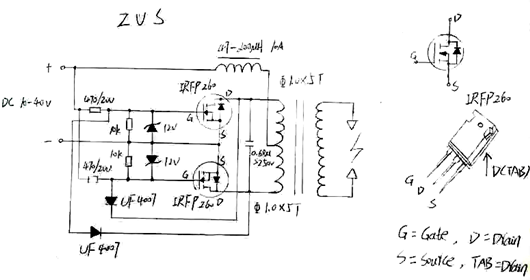 ZVS
+
DC 10-40V
-
47-200μH 10A
470/2W
10K
12V
IRFP260
D
G
S
Φ1.0×5T
10K
12V
470/2W
0.68μ
>250V
S
G
D
IRFP260
Φ1.0×5T
UF4007
UF4007
D
G
S
IRFP260
D(TAB)
G
D
S
G=Gate, D=Drain
S=Source, TAB=Drain